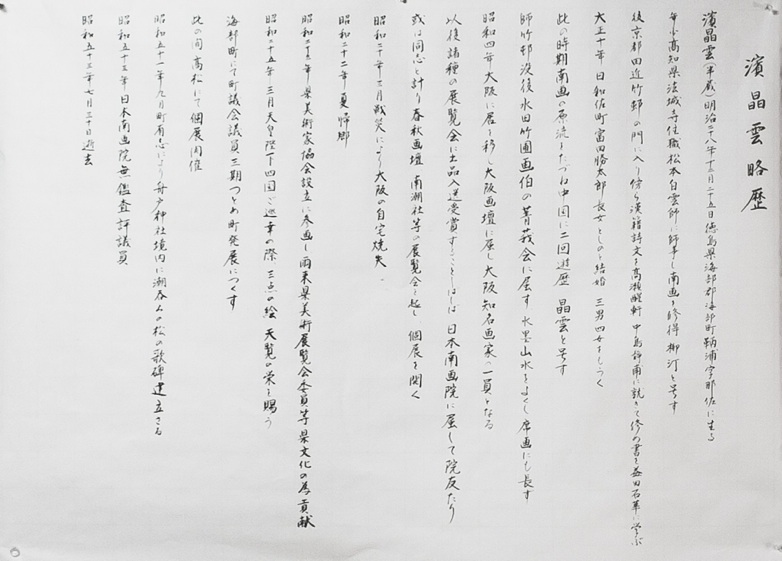 濱晶雲略歴
濱晶雲(半蔵)明治二八年十二月二十五日徳島県海部郡海部町鞆浦字那佐に生る
年少高知県法城寺住職松本白雲師に師事し南画を修得 柳汀と号す
後京都田近竹邨の門に入り傍ら漢籍詩文を高瀬 軒 中島 雨に就きて修め書を益田石華に学ぶ
大正十年 日和佐町富田勝太郎長女としのと結婚 三男四女をもうく
此の時期南画の源流をたづね中国に二回遊歴 晶雲と号す
師竹邨没後水田竹圃画伯の菁莪会に属す 水墨山水をよくし席画にも長す
昭和四年大阪に居を移し大阪画壇に属し大阪知名画家の一員となる
以後諸種の展覧会に出品入選受賞することしばしば 日本南画院に属して院友たり
或は同志と計り春秋画壇 南潮社等の展覧会を起し 個展を開く
昭和二十年三月戦災により大阪の自宅焼失
昭和二十二年夏帰郷
昭和二十三年県美術家協会設立に参画し爾来県美術展覧会委員等県文化の為貢献
昭和二十五年三月天皇陛下四国ご巡幸の際 三点の絵 天覧の栄を賜う
海部町にて町議会議員三期つとめ町発展につくす
此の間高松にて個展開催
昭和五十一年九月町有志により舟戸神社境内に潮呑みの松の歌碑建立さる
昭和五十三年日本南画院無鑑査評議員
昭和五十三年七月二十日逝去